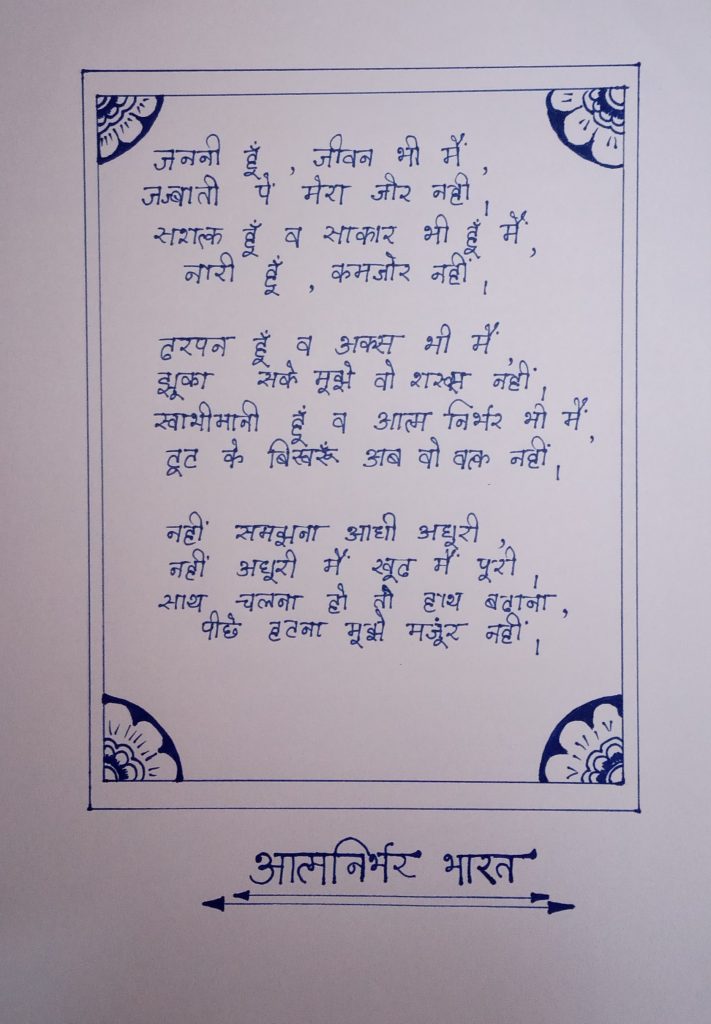 जननी हूँ , जीवन भी मैं ,
जज्बातो पें मेरा जोर नही ,
सशत्क हूँ व साकार भी हूँ मैं,
नारी हूँ , कमजोर नहीं ,
ढरपन हूँ व अकस भी मैं ,
झूका सके मूझे वो शख्स नहीं ,
स्वाभीमानी हूँ व आत्म निर्भर भी मैं,
टूट के बिखरूँ अब वो वत्क नहीं ,
नहीं समझना आधी अधूरी ,
नहीं अधूरी मैं खूढ मैं पूरी ,
साथ चलना हो तो हाथ बढाना ,
पीछे हटना मूझे मजूंर नहीं ,
आत्मनिर्भर भारत